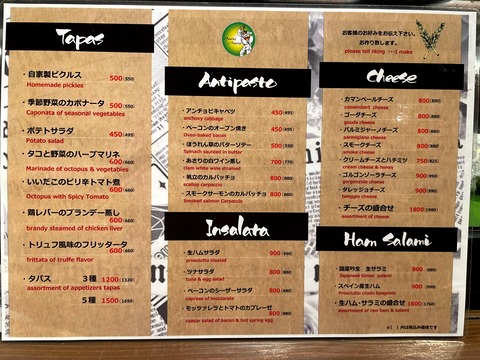 Tapas
・自家製ピクルス 500(550)
Homemade pickles
・季節野菜のカポナータ 500(550)
Caponata of seasonal vegetables
・ポテトサラダ 450(495)
Potato salad
・タコと野菜のハーブマリネ 600(660)
Marinade of octopus & vegetables
・いいだこのピリ辛トマト煮 600(660)
Octopus with Spicy Tomato
・鶏レバーのブランデー蒸し 600(660)
brandy steamed of chicken liver
・トリュフ風味のフリッタータ 600(660)
frittata of truffle flavor
・タパス 3種 1200(1320)
assortment of appetizers tapas
5種 1500(1650)
Antipasto
・アンチョビキャベツ 450(495)
anchovy cabbage
・ベーコンのオーブン焼き 450(495)
Oven-baked bacon
・ほうれん草のバターソテー 500(550)
Spinach sauteed in butter
・あさりの白ワイン蒸し 700(770)
clam white wine stramed
・帆立のカルパッチョ 800(880)
scallop carpaccio
・スモークサーモンのカルパッチョ 800(880)
Smoked salmon Carpaccio
Insalata
・生ハムサラダ 900(990)
prosciutto insalad
・ツナサラダ 800(880)
tuna & egg salad
・ベーコンのシーザーサラダ 900(990)
caprese of mozzarella
・モッツァレラとトマトのカプレーゼ 800(880)
caesar salad of bacon & hot spring egg
お客様のお好みをお伝え下さい。
お作り致します。
please tell liking ・・・I make
Cheese
・カマンベールチーズ 800(880)
camembert cheese
・ゴーダチーズ 800(880)
gouda cheese
・パルミジャーノチーズ 800(880)
parmigiano cheese
・スモークチーズ 800(880)
smoke cheese
・クリームチーズとハチミツ 750(825)
cream cheese & honey
・ゴルゴンゾーラチーズ 900(990)
gorgonzola cheese
・タレッジョチーズ 900(990)
taleggio cheese
・チーズの盛合せ 1800(1980)
assortment of cheese
Ham Salami
・国産吟生 生サラミ 800(880)
Japanese Ginsei salami
・スペイン産生ハム 900(990)
Prosciutto crudo Spagnolo
・生ハム・サラミの盛合せ 1600(1760)
assortment of raw ham & salami
※( )内は税込み価格です